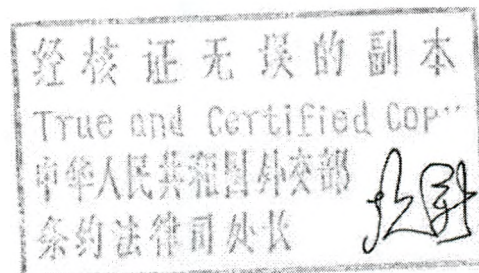 经核证无误的副本
True and Certified Copy
中华人民共和国外交部
条约法律司处长